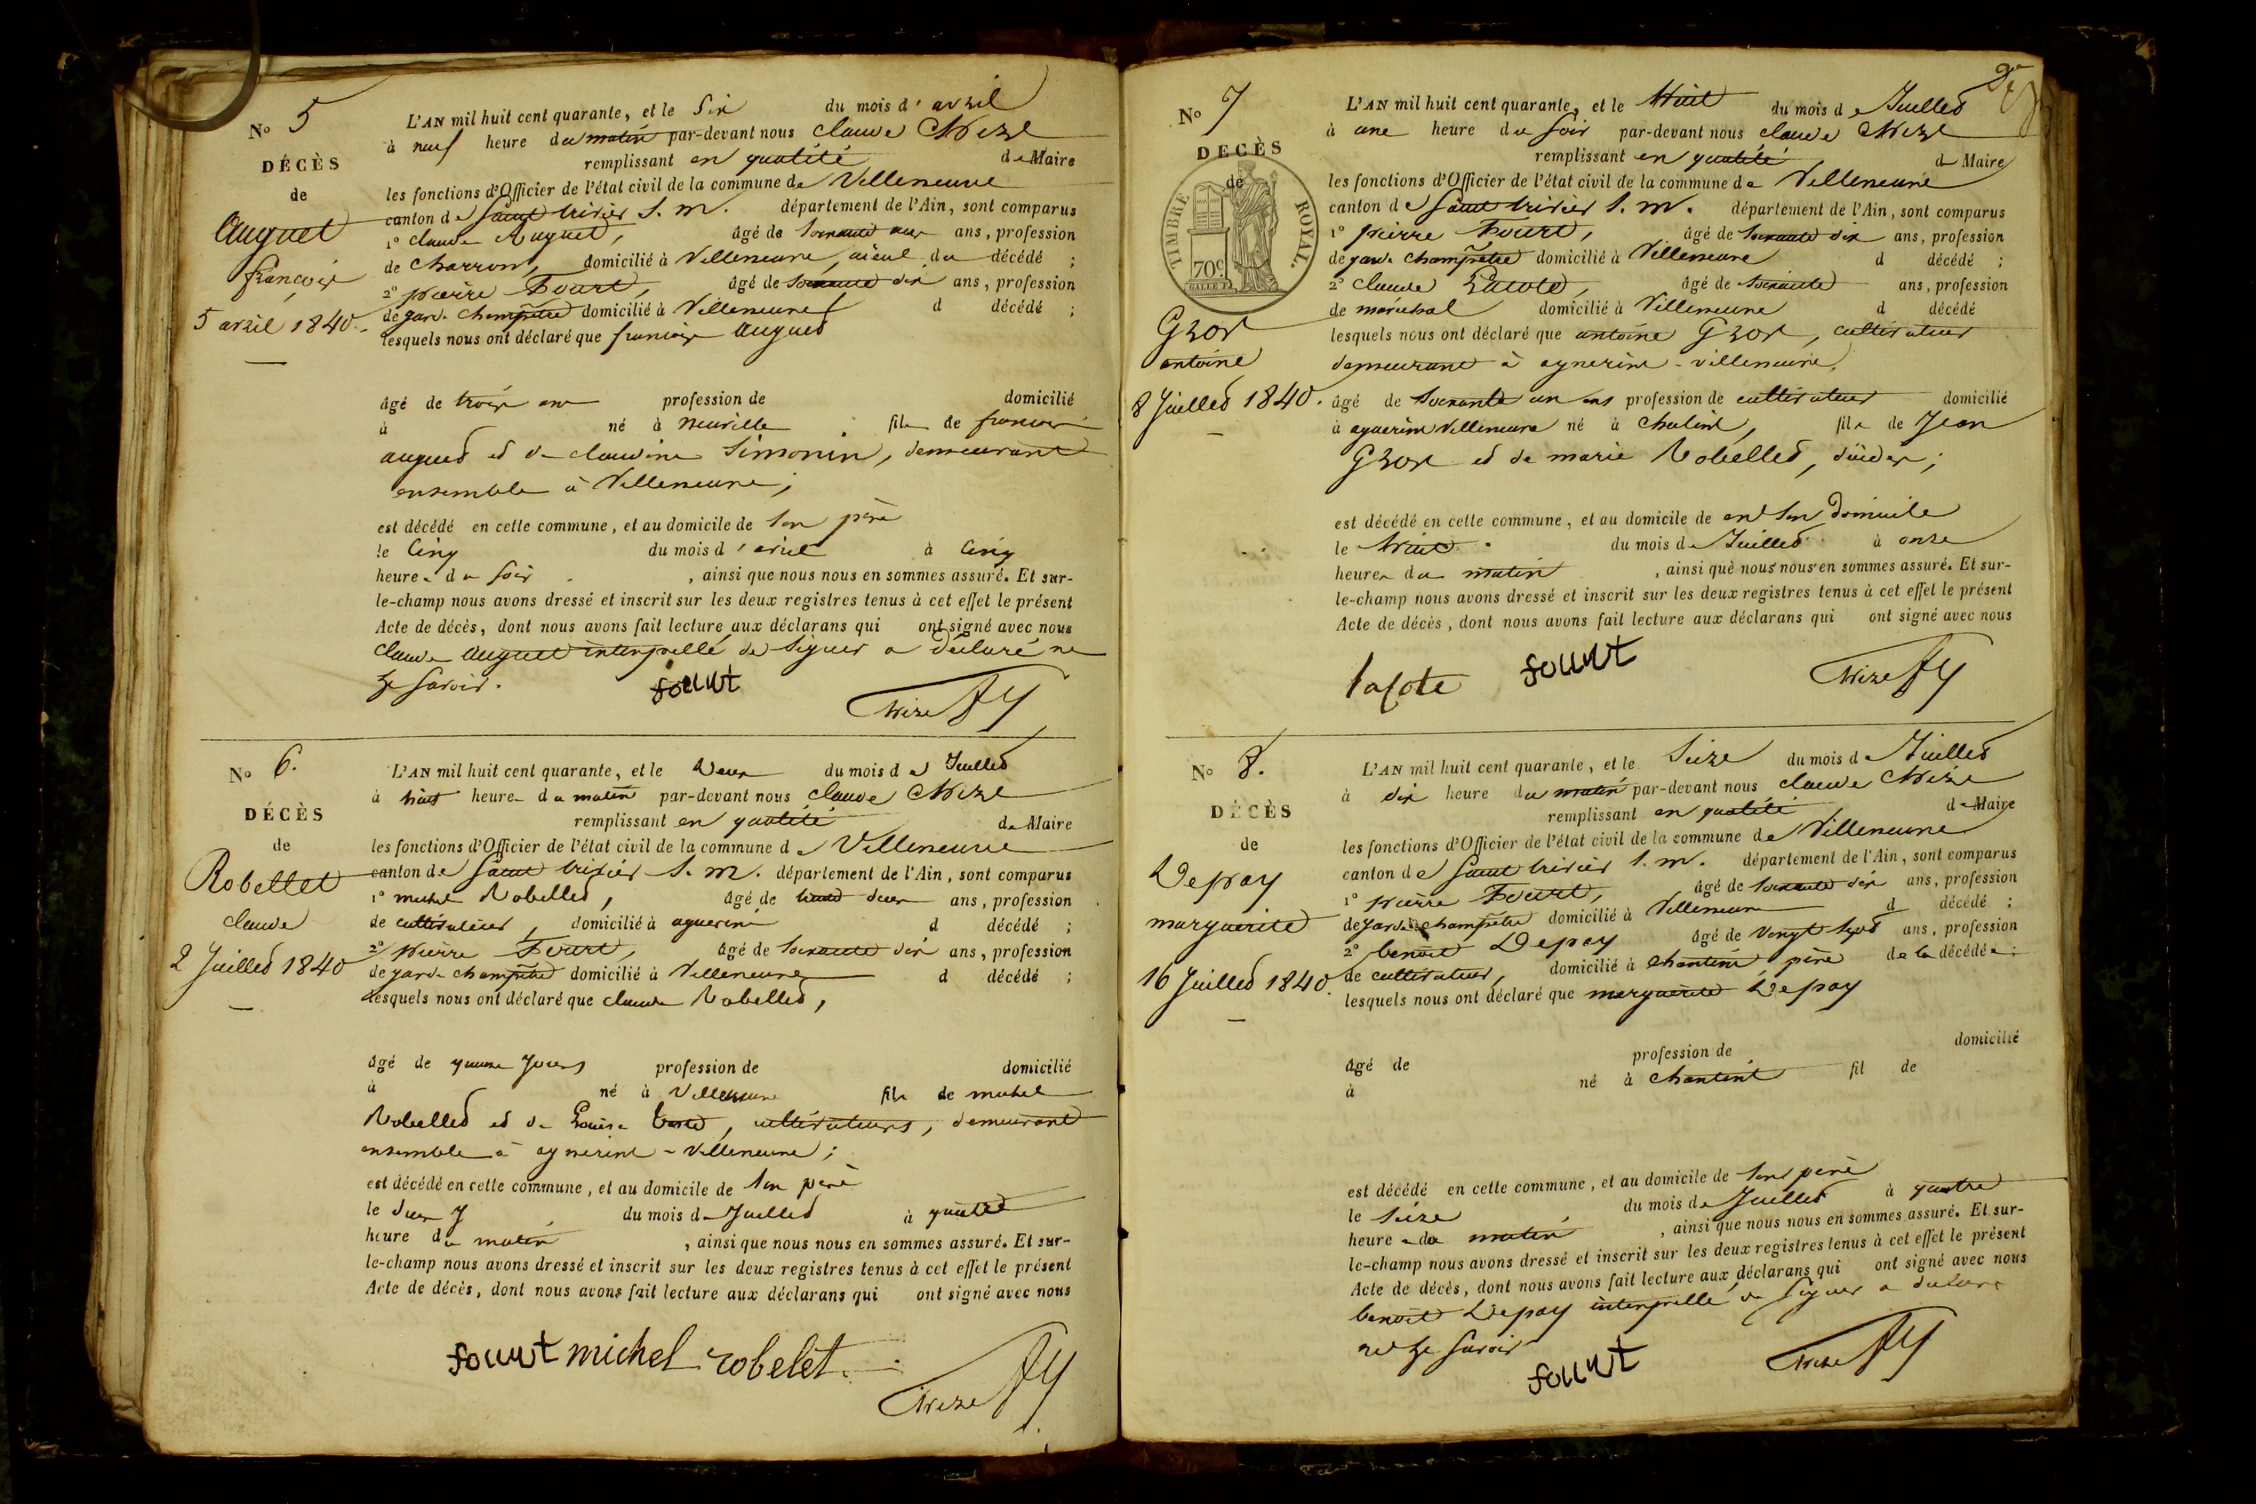 No 5
DÉCÈS
de
Auguet
françois
5 avril 1840.
L'AN mil huit cent quarante, et le Six du mois d'avril
à neuf heure du matin par-devant nous claude
remplissant en qualité de Maire
les fonctions d'Officier de l'état civil de la commune de Villeneuve
canton de Saint trivier S. m. département de l'Ain, sont comparus
1° claude Auguet, âgé de ans, profession
de charron, domicilié à Villeneuve, aieul du décédé ;
2° pierre Fourt, âgé de soixante dix ans, profession
de garde champêtre domicilié à Villeneuve d décédé ;
lesquels nous ont déclaré que françois auguet
âgé de trois ans profession de domicilié
à né à neuville fils de françois
auguet et de claudine Simonin, demeurant
ensemble à Villeneuve ;
est décédé en cette commune, et au domicile de son père
le Cinq du mois d'avril à Cinq
heures du soir , ainsi que nous nous en sommes assuré. Et sur-
le-champ nous avons dressé et inscrit sur les deux registres tenus à cet effet le présent
Acte de décès, dont nous avons fait lecture aux déclarans qui ont signé avec nous
claude auguet interpellé de signer a déclaré ne
le savoir.
fourt
No 6.
DÉCÈS
de
Robellet
claude
2 Juillet 1840
L'AN mil huit cent quarante, et le Deux du mois de Juillet
à huit heures du matin par-devant nous claude
remplissant en qualité de Maire
les fonctions d'Officier de l'état civil de la commune de Villeneuve
canton de Saint trivier S. m. département de l'Ain, sont comparus
1° michel Robellet, âgé de trente deux ans, profession
de cultivateur, domicilié à agnerins d décédé ;
2° pierre Fourt, âgé de soixante dix ans, profession
de garde champêtre domicilié à Villeneuve d décédé ;
lesquels nous ont déclaré que claude Robellet,
âgé de quinze jours profession de domicilié
à né à Villeneuve fils de michel
Robellet et de Louise cultivateurs, demeurant
ensemble à agnerins - villeneuve ;
est décédé en cette commune, et au domicile de son père
le deux du mois de Juillet à quatre
heure du matin , ainsi que nous nous en sommes assuré. Et sur-
le-champ nous avons dressé et inscrit sur les deux registres tenus à cet effet le présent
Acte de décès, dont nous avons fait lecture aux déclarans qui ont signé avec nous
fourt michel robelet
No 7
DECÈS
de
TIMBRE ROYAL.
70c
Gros
antoine
8 Juillet 1840.
L'AN mil huit cent quarante, et le Huit du mois de Juillet
à une heure du soir par-devant nous claude
remplissant en qualité d Maire
les fonctions d'Officier de l'état civil de la commune de Villeneuve
canton de Saint trivier S. m. département de l'Ain, sont comparus
1° pierre Fourt, âgé de soixante dix ans, profession
de garde champêtre domicilié à Villeneuve d décédé ;
2° claude Lacote, âgé de soixante ans, profession
de maréchal domicilié à Villeneuve d décédé
lesquels nous ont déclaré que antoine Gros, cultivateur
demeurant à agnerins - villeneuve,
âgé de soixante un ans profession de cultivateur domicilié
à agnerins Villeneuve né à chaleins, fils de Jean
Gros et de marie Robellet, décédés ;
est décédé en cette commune, et au domicile de en son domicile
le huit du mois de Juillet à onze
heures du matin , ainsi que nous nous en sommes assuré. Et sur-
le-champ nous avons dressé et inscrit sur les deux registres tenus à cet effet le présent
Acte de décès, dont nous avons fait lecture aux déclarans qui ont signé avec nous
lacote fourt
No 8.
DÉCÈS
de
Depay
marguerite
16 Juillet 1840.
L'AN mil huit cent quarante, et le Seize du mois de Juillet
à dix heure du matin par-devant nous claude
remplissant en qualité de Maire
les fonctions d'Officier de l'état civil de la commune de Villeneuve
canton de Saint trivier S. m. département de l'Ain, sont comparus
1° pierre Fourt, âgé de soixante dix ans, profession
de garde champêtre domicilié à Villeneuve d décédé ;
2° benoit Depay âgé de vingt sept ans, profession
de cultivateur, domicilié à père de la décédée ;
lesquels nous ont déclaré que marguerite Depay
âgé de profession de domicilié
à né à fil de
est décédé en cette commune, et au domicile de son père
le seize du mois de Juillet à quatre
heures du matin , ainsi que nous nous en sommes assuré. Et sur-
le-champ nous avons dressé et inscrit sur les deux registres tenus à cet effet le présent
Acte de décès, dont nous avons fait lecture aux déclarans qui ont signé avec nous
benoit Depay interpellé de signer a déclaré
ne le savoir
fourt